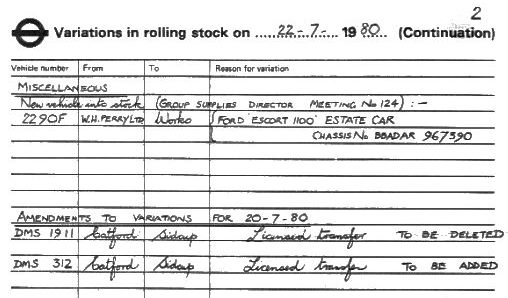 2
Variations in rolling stock on ..... 22-7- ..... 19 80 .. (Continuation)
Vehicle number From To Reason for variation
MISCELLANEOUS
New vehicle into stock (GROUP SUPPLIES DIRECTOR MEETING No 124) :-
2290F W.H. PERRY LTD Works FORD 'ESCORT 1100' ESTATE CAR
CHASSIS No BBADAR 967390
AMENDMENTS TO VARIATIONS FOR 20-7-80
DMS 1911 Catford Sidcup Licensed transfer TO BE DELETED
DMS 312 Catford Sidcup Licensed transfer TO BE ADDED